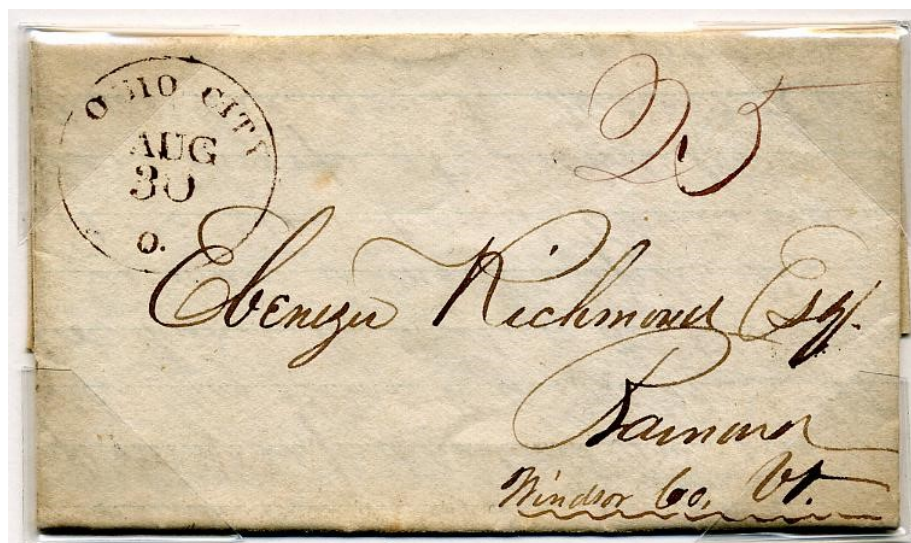 OHIO CITY
AUG
30
O.
25
Ebenezer Richmond Esq.
Barnard
Windsor Co. Vt.